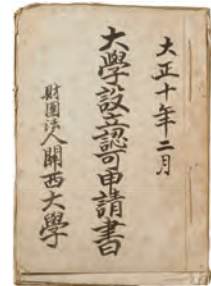 大正十年二月
大學設立認可申請書
財團法人關西大學